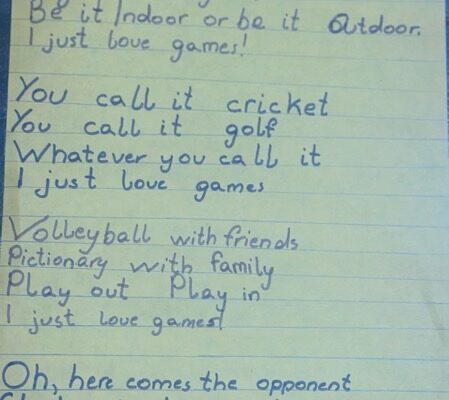 Be it Indoor or be it Outdoor.
I just love games!
You call it cricket
You call it golf
Whatever you call it
I just love games
Volleyball with friends
Pictionary with family
Play out Play in
I just love games!
Oh, here comes the opponent